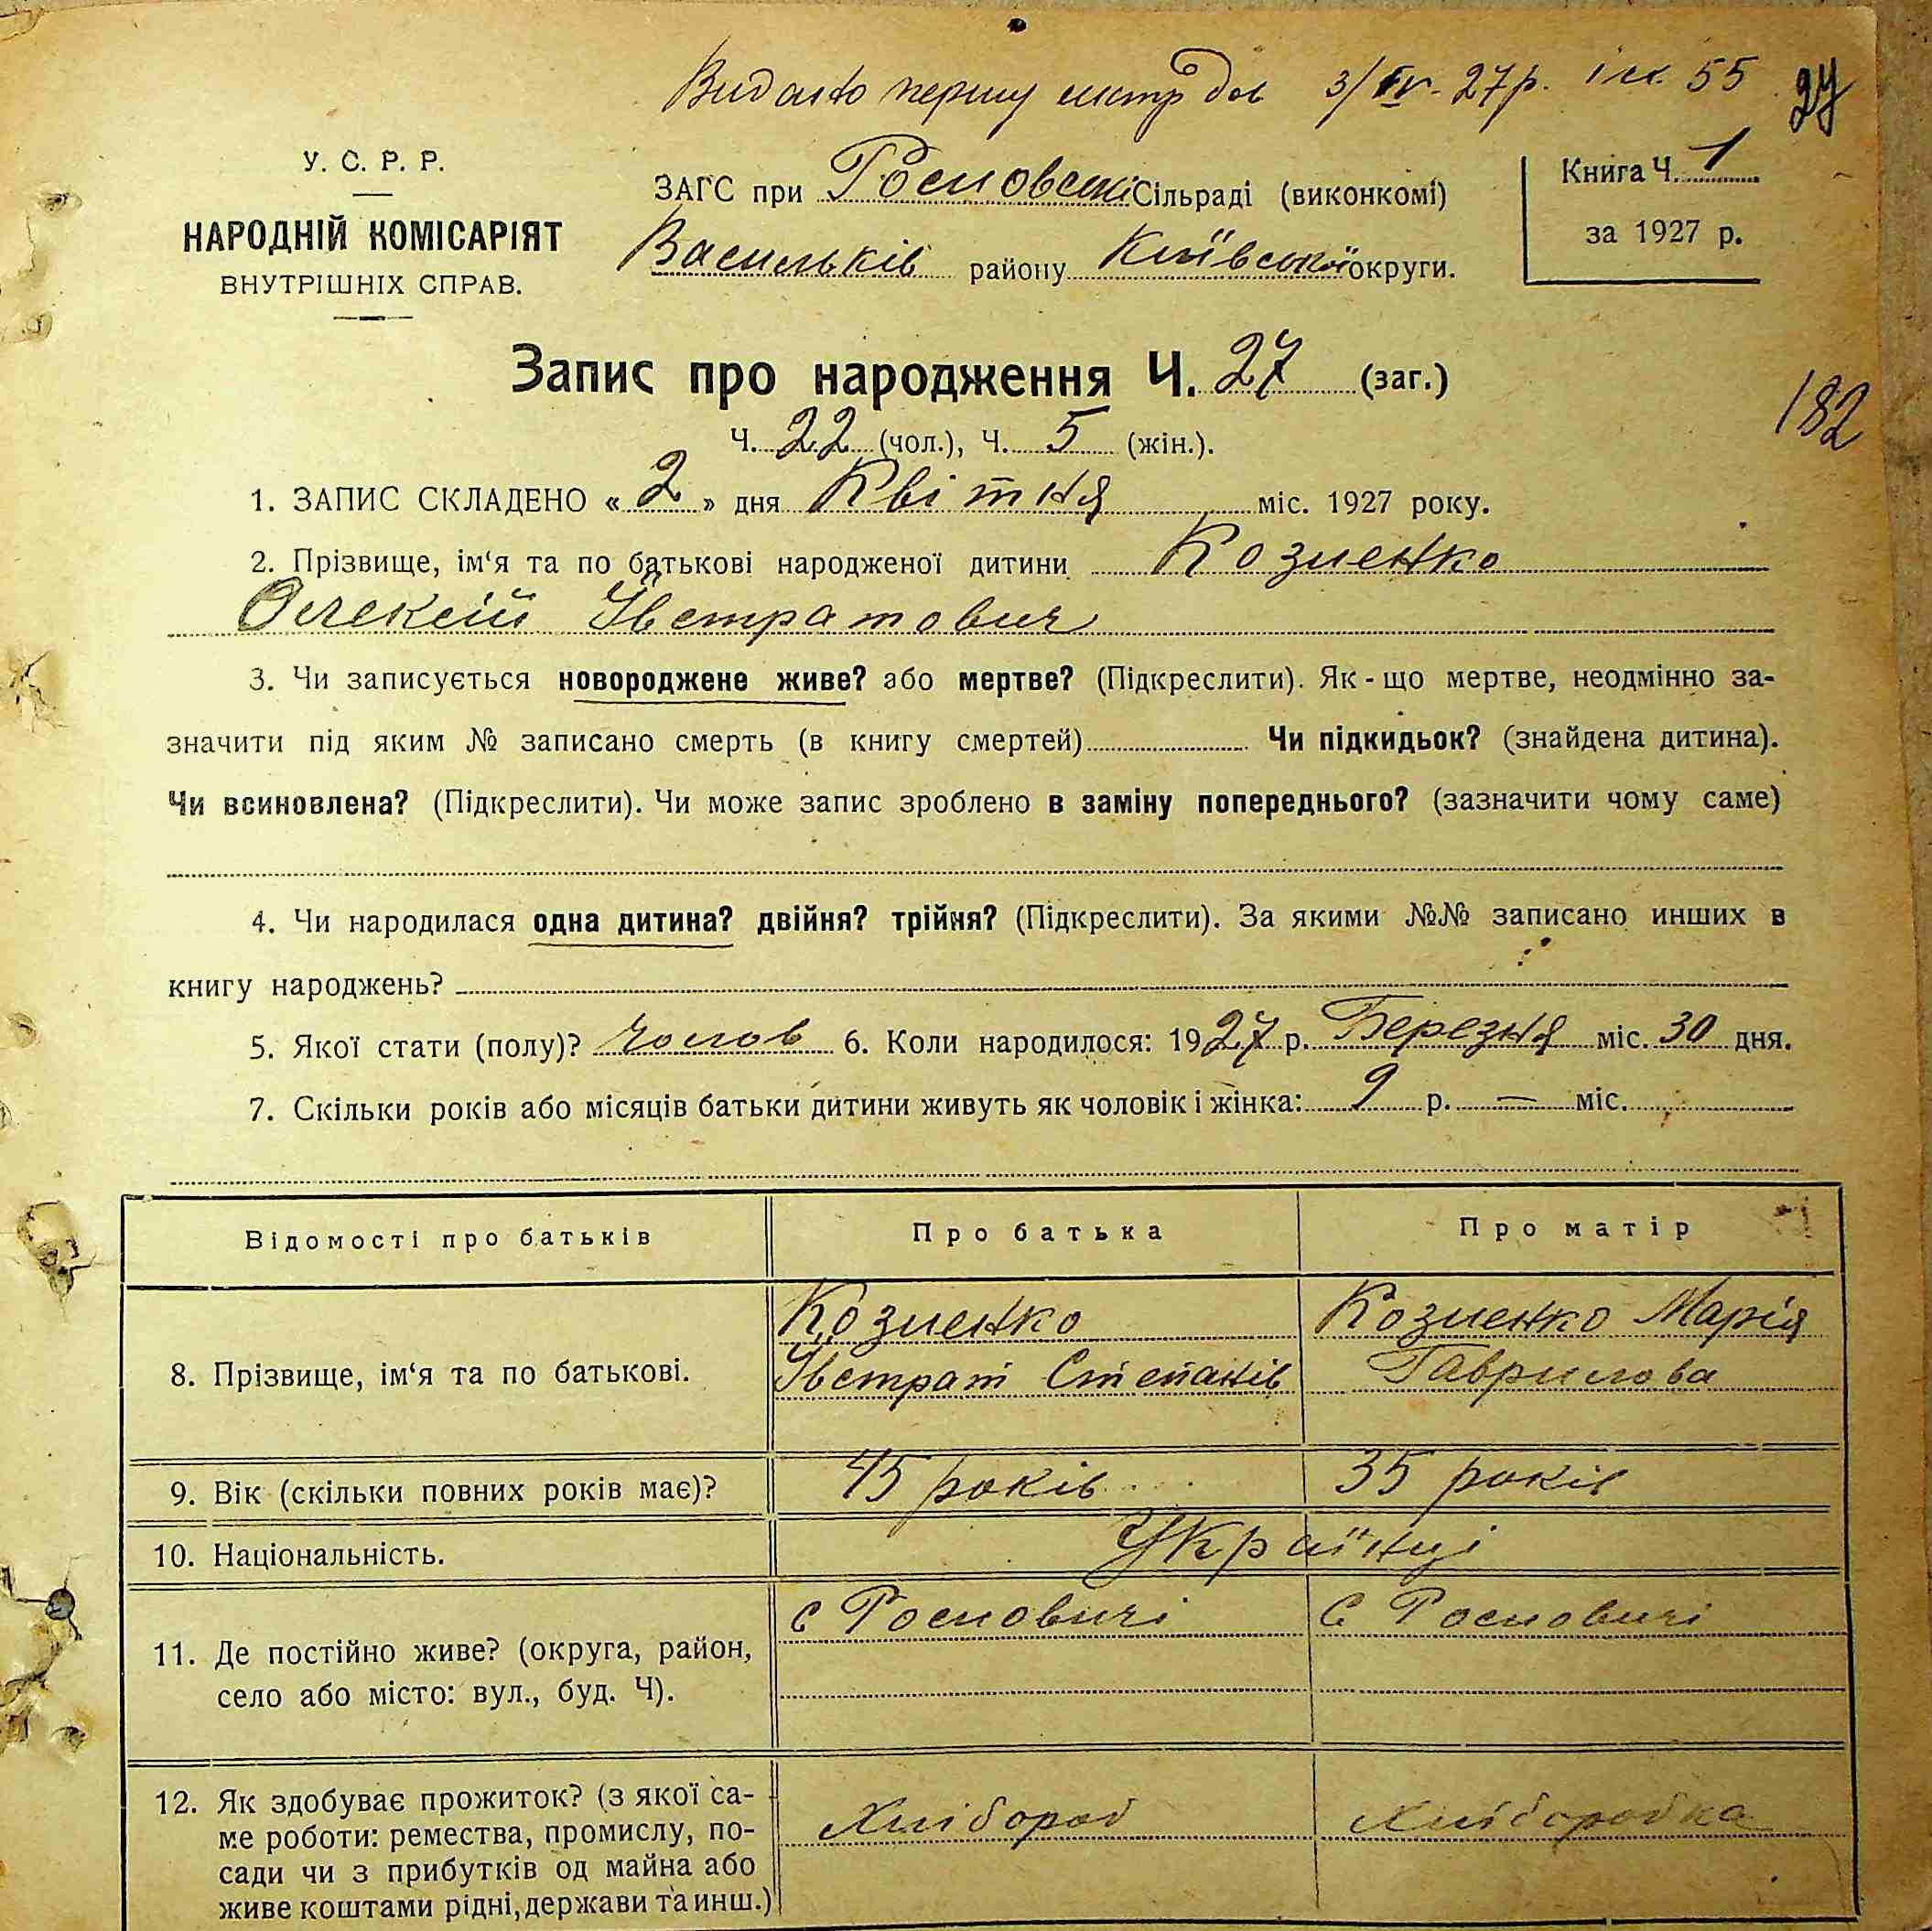 Видано першу 3/IV-27 р. 55 27
У. С. Р. Р.
НАРОДНІЙ КОМІСАРІЯТ
ВНУТРІШНІХ СПРАВ.
ЗАГС при Росновські Сільраді (виконкомі)
Васильків району Київської округи.
Книга Ч. 1
за 1927 р.
Запис про народження Ч. 27 (заг.)
182
Ч. 22 (чол.), Ч. 5 (жін.).
1. ЗАПИС СКЛАДЕНО « 2 » дня Квітня міс. 1927 року.
2. Прізвище, ім‘я та по батькові народженої дитини Козленко
Олексій Івстратович
3. Чи записується новороджене живе? або мертве? (Підкреслити). Як-що мертве, неодмінно за-
значити під яким № записано смерть (в книгу смертей) Чи підкидьок? (знайдена дитина).
Чи всиновлена? (Підкреслити). Чи може запис зроблено в заміну попереднього? (зазначити чому саме)
4. Чи народилася одна дитина? двійня? трійня? (Підкреслити). За якими №№ записано инших в
книгу народжень?
5. Якої стати (полу)? Чолов 6. Коли народилося: 1927 р. Березня міс. 30 дня.
7. Скільки років або місяців батьки дитини живуть як чоловік і жінка: 9 р. — міс.
Відомості про батьків Про батька Про матір
8. Прізвище, ім‘я та по батькові.
Козленко
Івстрат Степанів
Козленко Марія
Гаврилова
9. Вік (скільки повних років має)? 45 років 35 років
10. Національність. Українці
11. Де постійно живе? (округа, район,
село або місто: вул., буд. Ч).
с Росновичі
с Росновичі
12. Як здобуває прожиток? (з якої са-
ме роботи: ремества, промислу, по-
сади чи з прибутків од майна або
живе коштами рідні, держави та инш.)
Хлібороб
Хліборобка